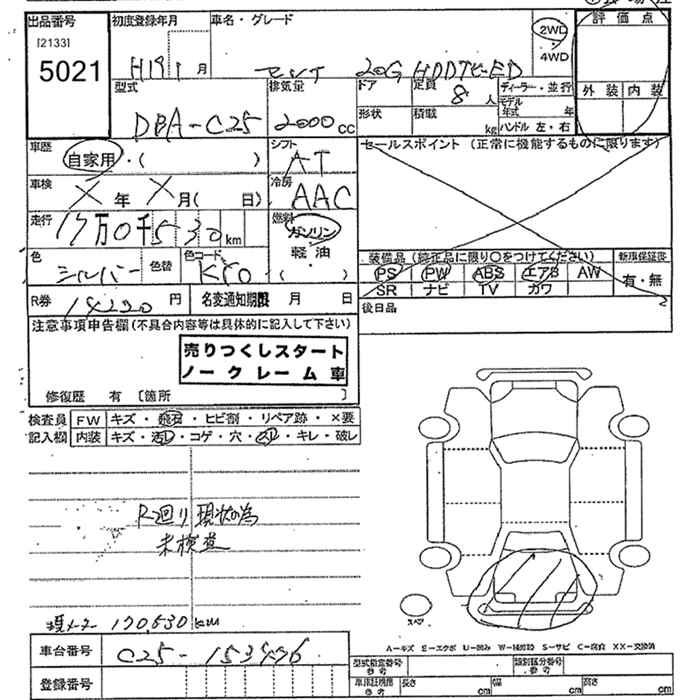 出品番号 初度登録年月 車名・グレード 2WD・4WD 評価点
[2133]
5021
H19 1月 セレナ 20G HDDナビED
型式 排気量 ドア 定員 8人 ディーラー・並行 外装 内装
DBA-C25 2000cc 形状 積載 kg モデル年式 年 ハンドル 左・右
車歴 シフト セールスポイント (正常に機能するものに限ります)
自家用・( ) AT
車検 冷房
X年 X月( 日) AAC
走行 燃料
17万0千530km ガソリン
軽油
( )
色 色替 色コード 装備品 (純正品に限り〇をつけてください) 新車保証書
シルバー KY0 PS PW ABS エアB AW 有・無
SR ナビ TV カワ
R券 14230円 名変通知期限 月 日 後日品
注意事項申告欄(不具合内容等は具体的に記入して下さい)
売りつくしスタート
ノークレーム車
修復歴 有 [箇所 ]
検査員 FW キズ・飛石・ヒビ割・リペア跡・×要
記入欄 内装 キズ・汚レ・コゲ・穴・スレ・キレ・破レ
R廻り現状の為
未検査
現メーター 170530km
スペア
A-キズ E-エクボ U-凹み W-補修跡 S-サビ C-腐食 XX-交換済
車台番号 C25-153476
登録番号
型式指定番号 参考 類別区分番号 参考
車庫証明用 参考 長さ cm 幅 cm 高さ cm